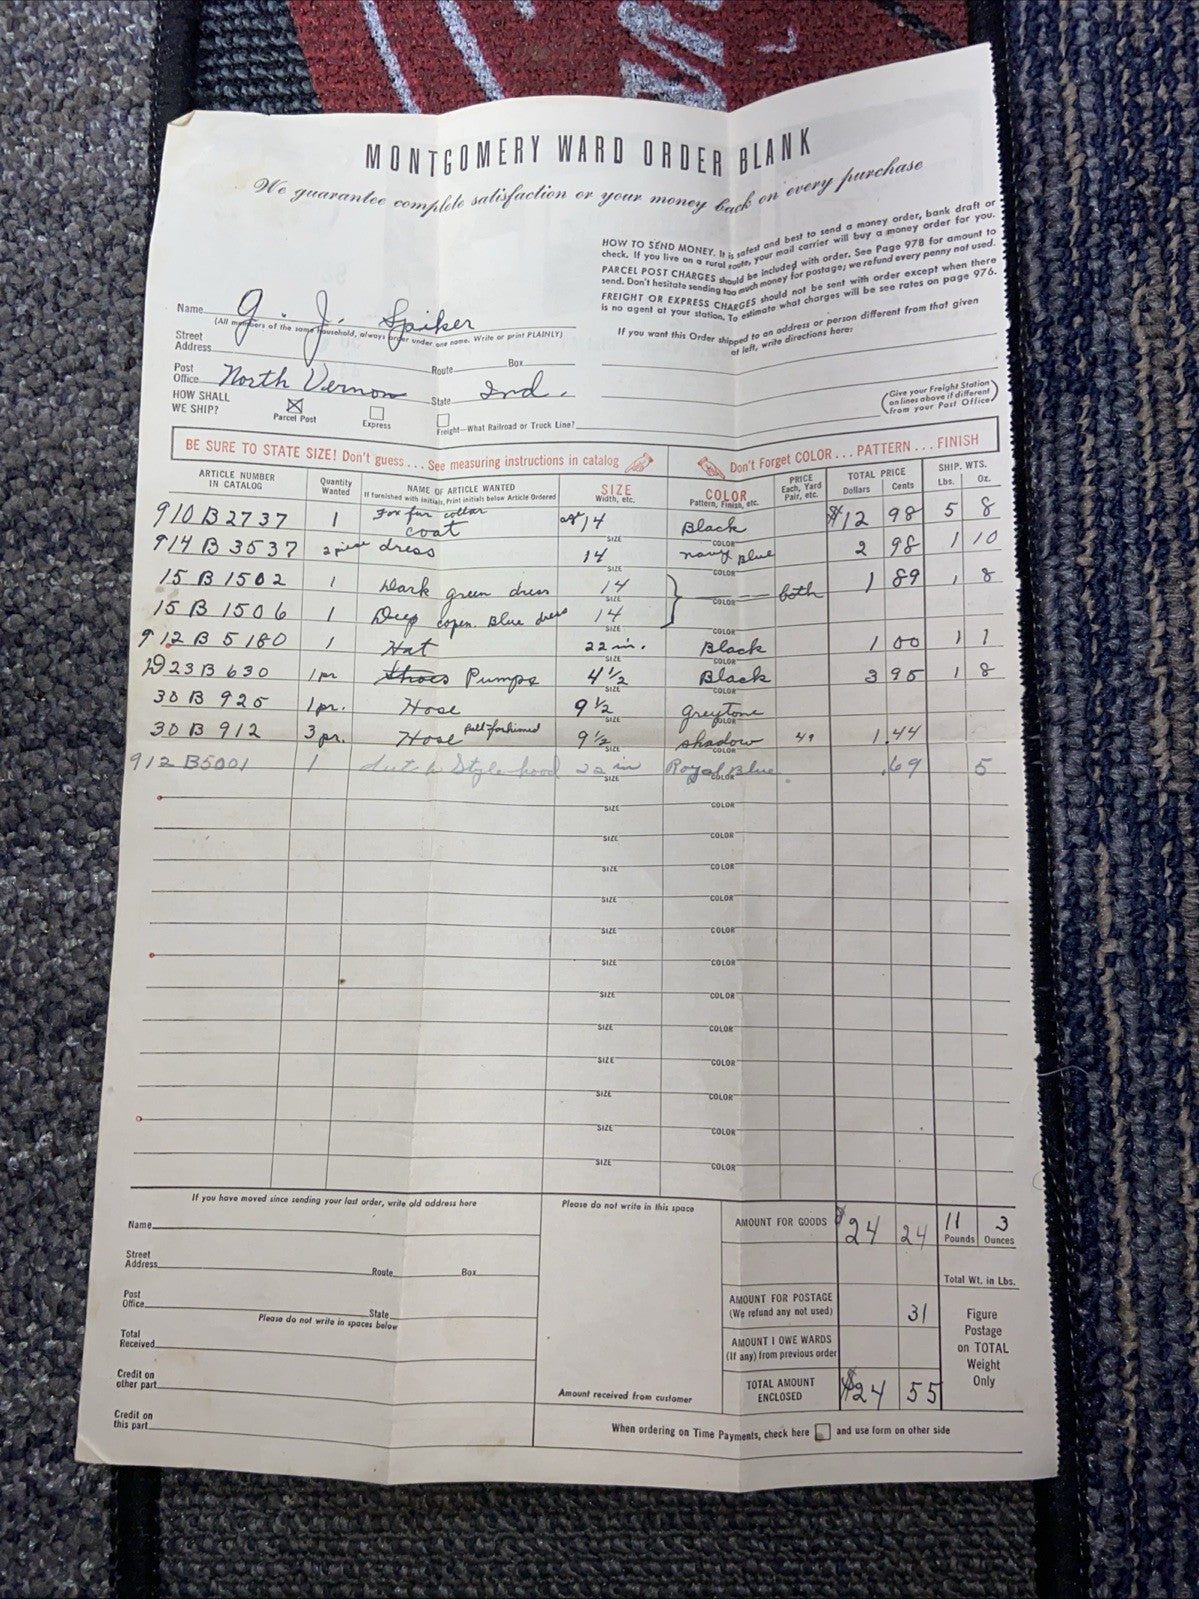 MONTGOMERY WARD ORDER BLANK
We guarantee complete satisfaction or your money back on every purchase
HOW TO SEND MONEY. It is safest and best to send a money order, bank draft or
check. If you live on a rural route, your mail carrier will buy a money order for you.
PARCEL POST CHARGES should be included with order. See Page 978 for amount to
send. Don't hesitate sending too much money for postage; we refund every penny not used.
FREIGHT OR EXPRESS CHARGES should not be sent with order except when there
is no agent at your station. To estimate what charges will be see rates on page 976.
If you want this Order shipped to an address or person different from that given
at left, write directions here:
Name G. J. Spiker
(All members of the same household, always order under one name. Write or print PLAINLY)
Street Address Route Box
Post Office North Vernon State Ind.
HOW SHALL WE SHIP? Parcel Post Express Freight—What Railroad or Truck Line?
(Give your Freight Station on lines above if different from your Post Office)
BE SURE TO STATE SIZE! Don't guess... See measuring instructions in catalog Don't Forget COLOR... PATTERN... FINISH
ARTICLE NUMBER IN CATALOG Quantity Wanted NAME OF ARTICLE WANTED If furnished with Initials, Print initials below Article Ordered SIZE Width, etc. COLOR Pattern, Finish, etc. PRICE Each, Yard Pair, etc. TOTAL PRICE Dollars Cents SHIP. WTS. Lbs. Oz.
910 B 2737 1 Fox fur collar coat 14 Black $12 98 5 8
914 B 3537 2 piece dress 14 navy Blue 2 98 1 10
15 B 1502 1 Dark green dress 14 both 1 89 1 8
15 B 1506 1 Deep copen. Blue dress 14
912 B 5180 1 Hat 22 in. Black 1 00 1 1
23 B 630 1 pr Shoes Pumps 4 1/2 Black 3 95 1 8
30 B 925 1 pr. Hose 9 1/2 greytone
30 B 912 3 pr. Hose full-fashioned 9 1/2 shadow 1.44
912 B5001 1 dutch Style hood 22 in Royal Blue. .69 5
SIZE COLOR
SIZE COLOR
SIZE COLOR
SIZE COLOR
SIZE COLOR
SIZE COLOR
SIZE COLOR
SIZE COLOR
SIZE COLOR
SIZE COLOR
SIZE COLOR
SIZE COLOR
If you have moved since sending your last order, write old address here
Name
Street Address Route Box
Post Office State
Please do not write in spaces below
Total Received
Credit on other part
Credit on this part
Please do not write in this space
Amount received from customer
AMOUNT FOR GOODS $24 24 11 Pounds 3 Ounces
Total Wt. in Lbs.
AMOUNT FOR POSTAGE (We refund any not used) 31
AMOUNT I OWE WARDS (If any) from previous order
TOTAL AMOUNT ENCLOSED $24 55
Figure Postage on TOTAL Weight Only
When ordering on Time Payments, check here and use form on other side